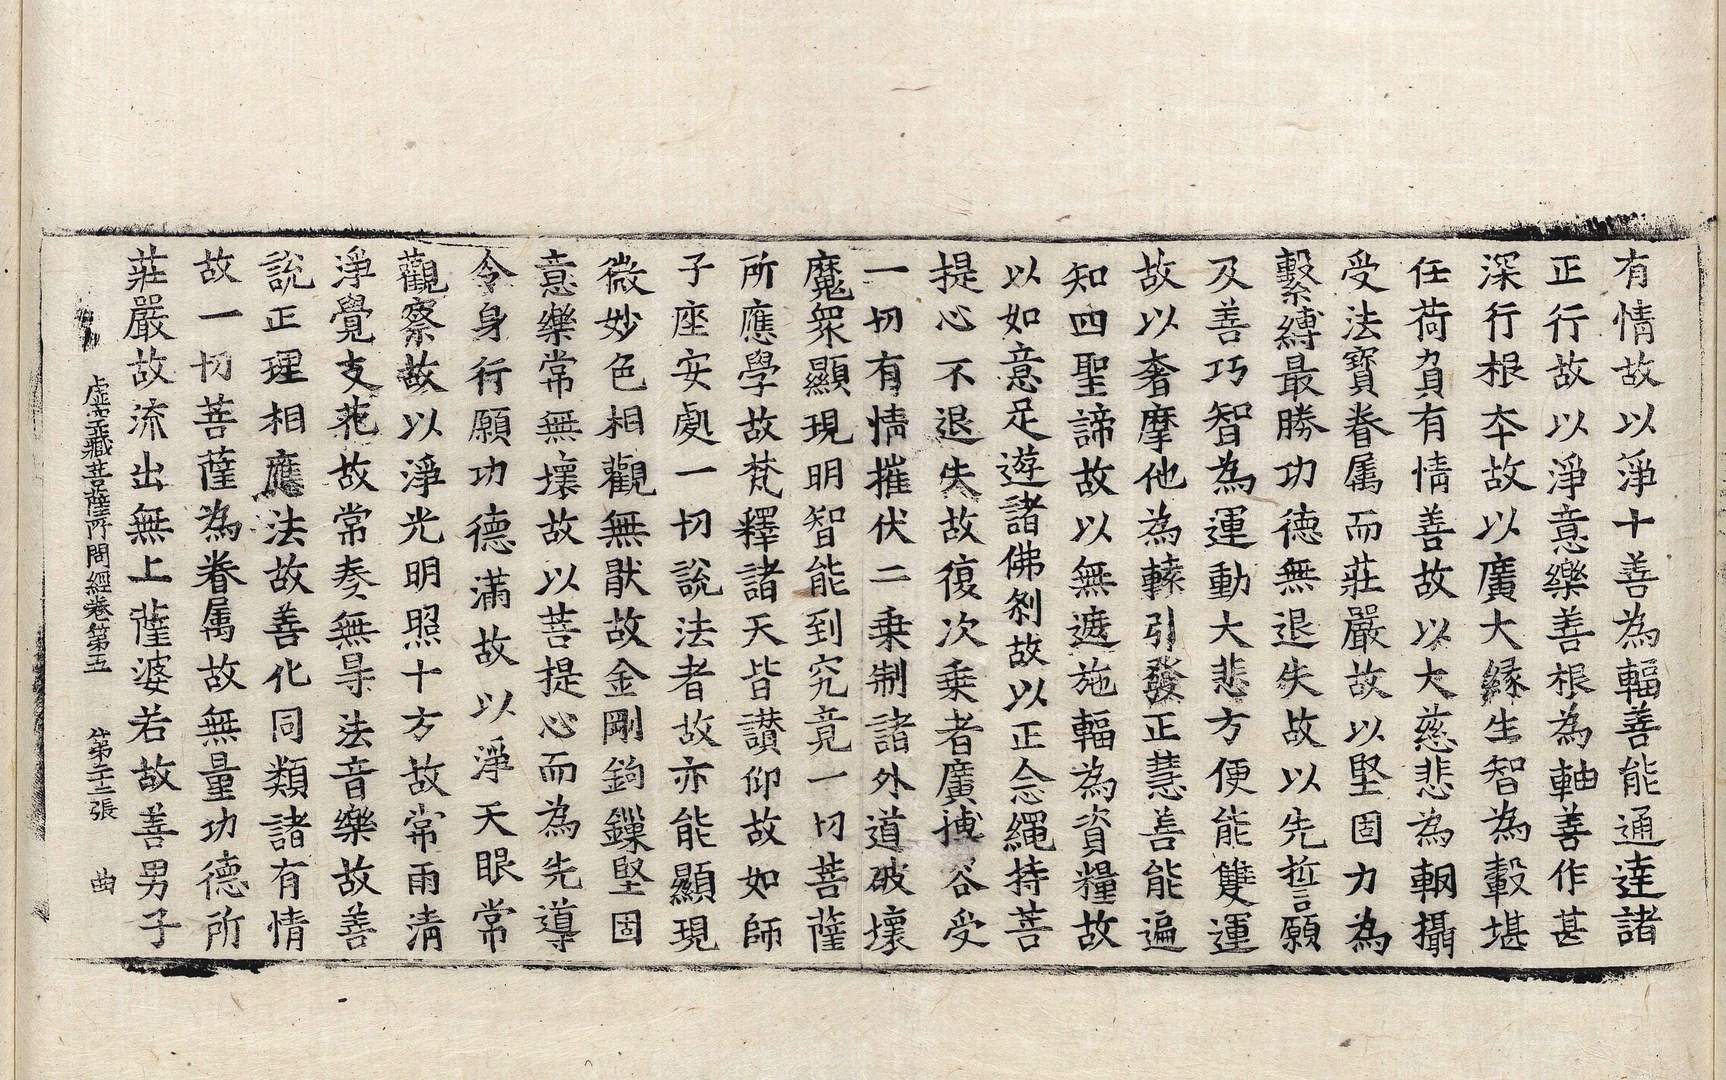 有情故以淨十善為輻善能通達諸
正行故以淨意樂善根為軸善作甚
深行根夲故以廣大緣生智為轂堪
任荷負有情善故以大慈悲為輞攝
受法寶眷属而莊嚴故以堅固力為
繫縛最勝功德無退失故以先誓願
及善巧智為運動大悲方便能雙運
故以奢摩他為轅引發正慧善能遍
知四聖諦故以無遮施輻為資糧故
以如意足遊諸佛刹故以正念繩持菩
提心不退失故復次乗者廣博容受
一切有情摧伏二乗制諸外道破壞
魔衆顯現明智能到究竟一切菩薩
所應學故梵釋諸天皆讃仰故如師
子座安處一切說法者故亦能顯現
微妙色相觀無厭故金剛鉤鏁堅固
意樂常無壞故以菩提心而為先導
令身行願功德滿故以淨天眼常
觀察故以淨光明照十方故常雨清
淨覺支花故常奏無㝵法音樂故善
說正理相應法故善化同類諸有情
故一切菩薩為眷属故無量功德所
莊嚴故流出無上薩婆若故善男子
虚空藏菩薩所問經卷第五 第二十二張 曲